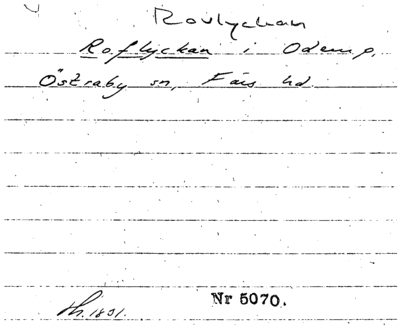 Rovlyckan
Roflyckan i Odemp,
Östraby sn, Färs hd.
Nr 5070.